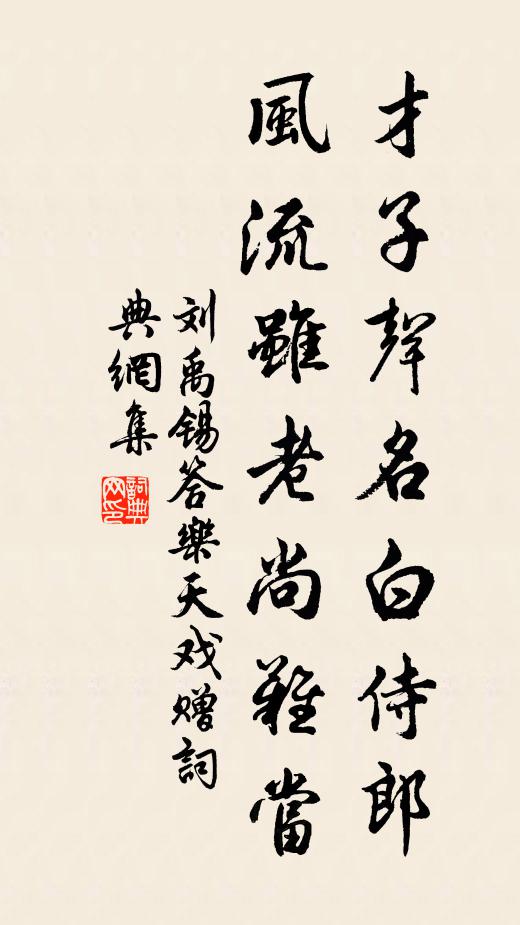 才子聲名白侍郎
風流雖老尚難當
刘禹锡答樂天戏赠詞
典網集
詞典网印